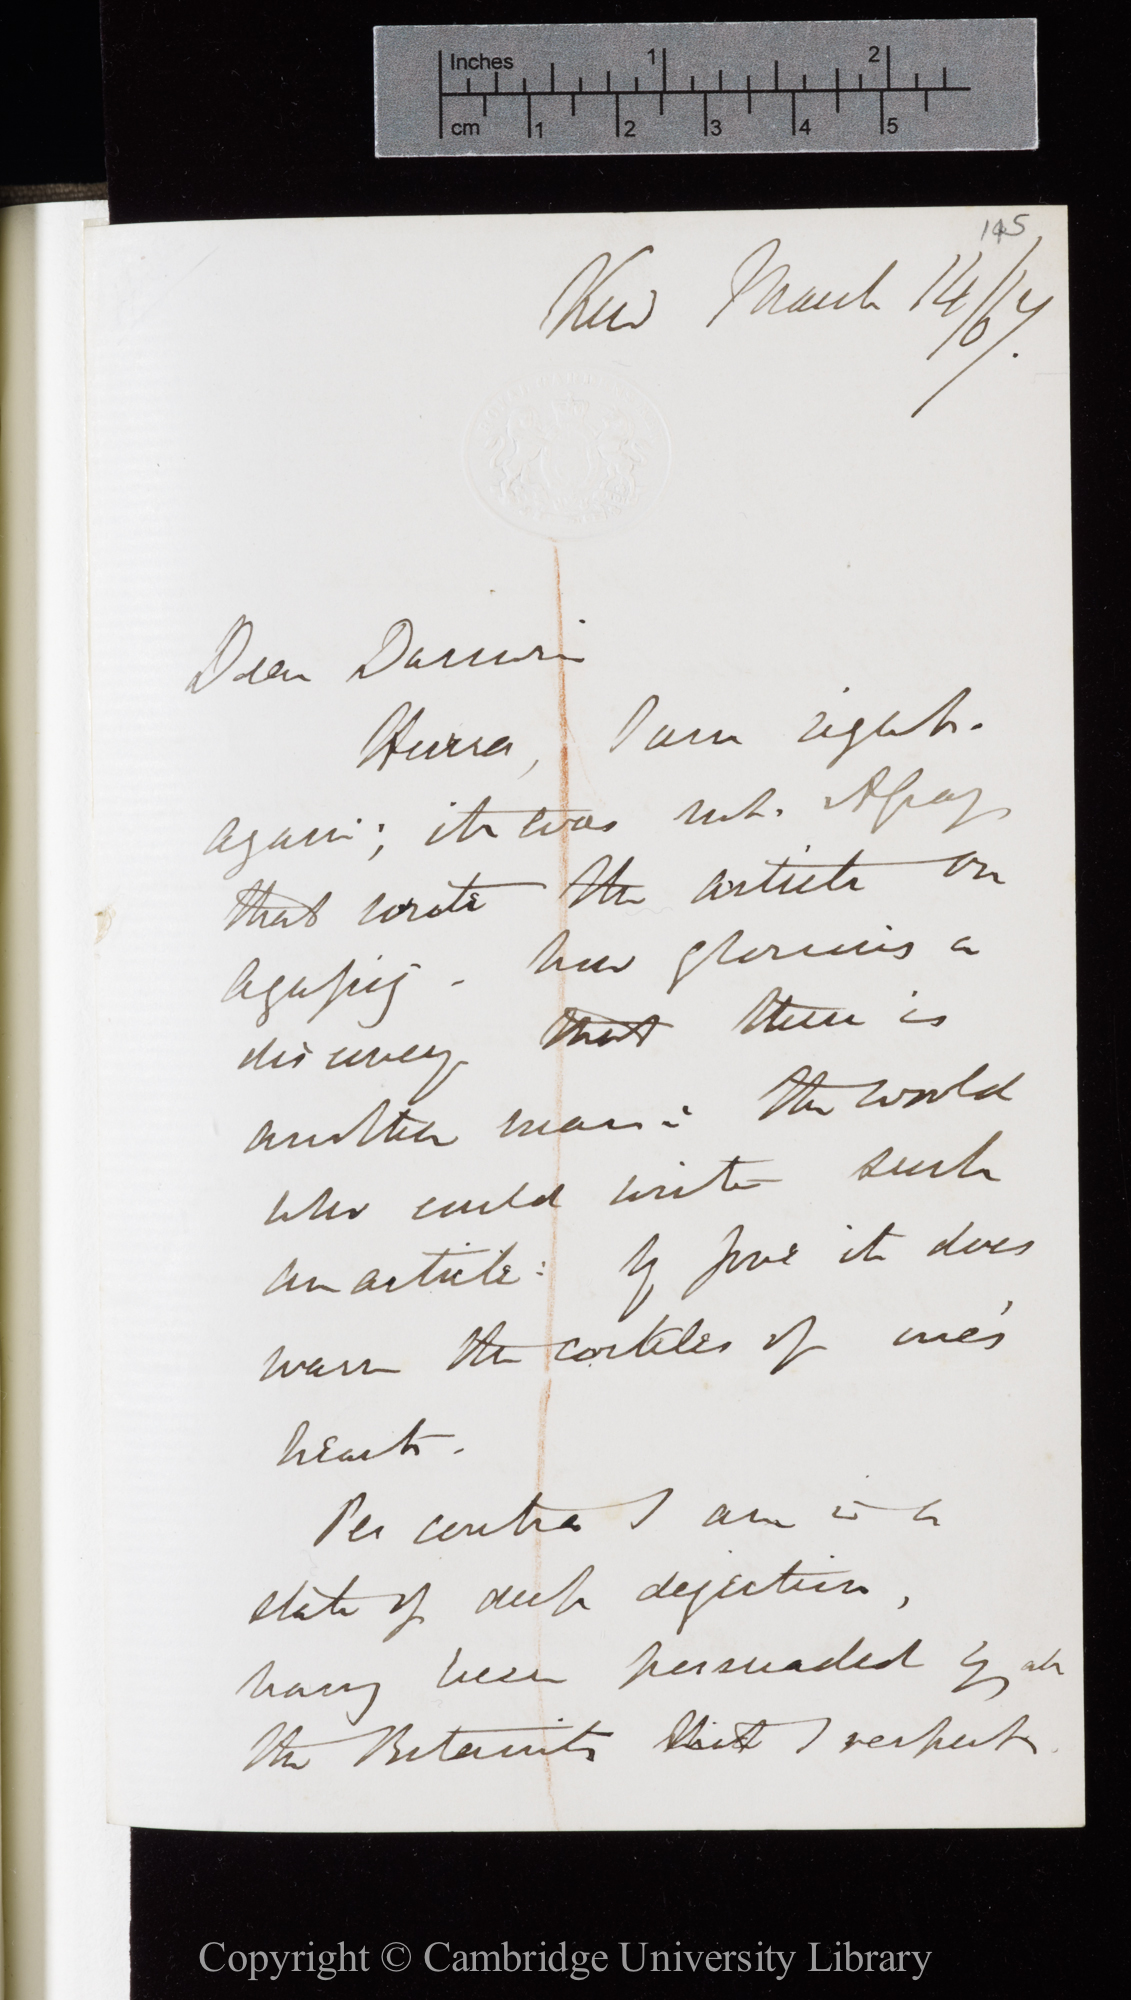 Inches 1 2
cm 1 2 3 4 5
145
Kew March 14/67.
Dear Darwin
Hurra, I am right
again; it was not Agassiz
that wrote the article on
Agassiz - how glorious a
discovery that there is
another man in the world
who could write such
an article: by Jove it does
warm the cockles of one's
heart.
Per contra I am in a
state of deep dejection,
having been persuaded by all
the Botanists that I respect
Copyright © Cambridge University Library